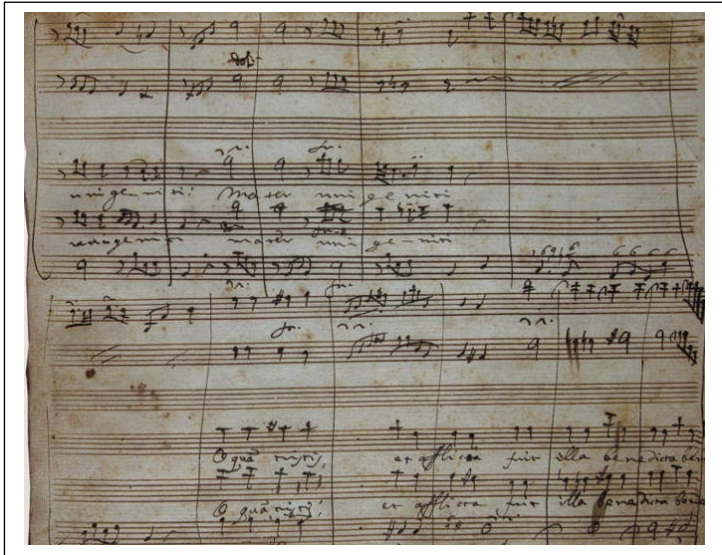 dol:
unigeniti: Mater unigeniti
unigeniti mater unigeniti
6 6 6 6 6 6
O quã tristis, et afflicta fuit illa benedicta ben
O quã tristis, et afflicta fuit illa benedicta bene